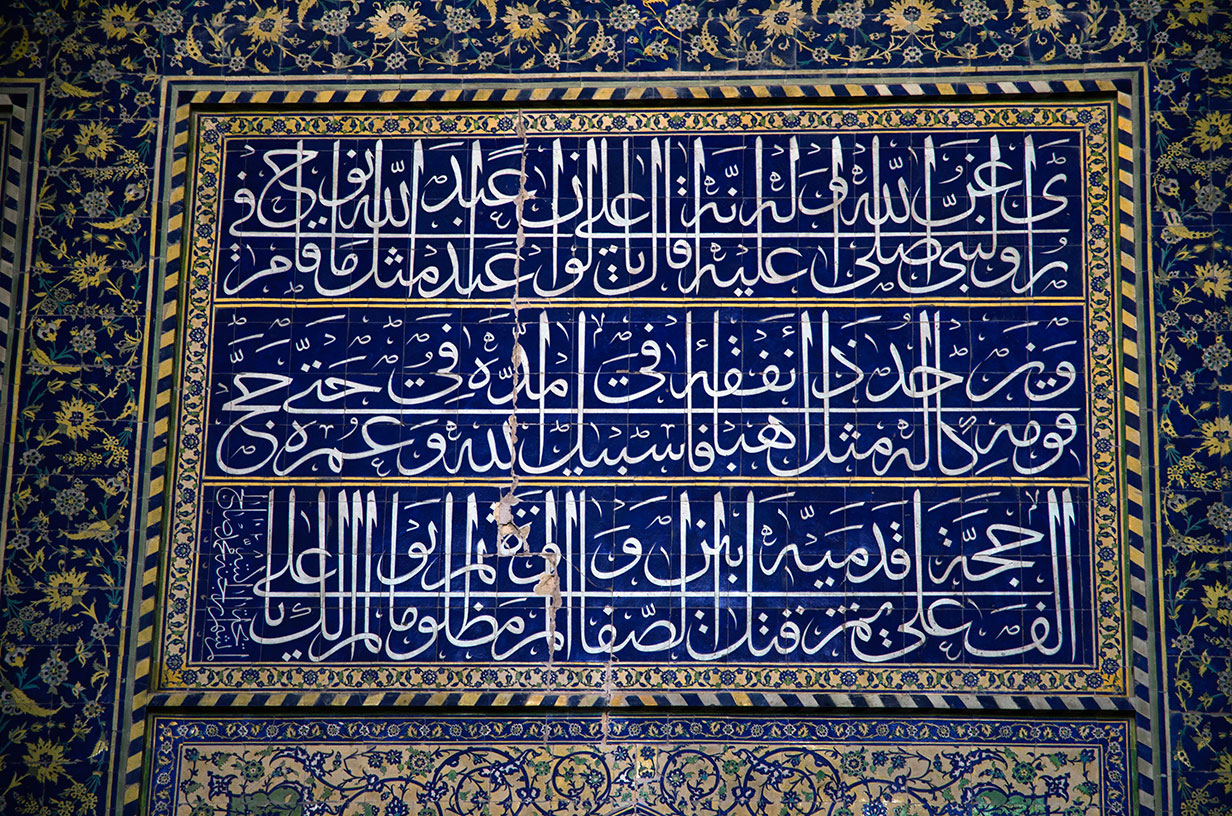 روي عن النبي صلى الله عليه وآله انه قال يا علي لو ان عبدا عبد الله مثل ما قام نوح في
قومه وكان له مثل احد ذهبا فانفقه في سبيل الله ومدّ في عمره حتى حجّ
الف حجة على قدميه ثم قتل بين الصفا والمروة مظلوما ثم لم يوالك يا علي